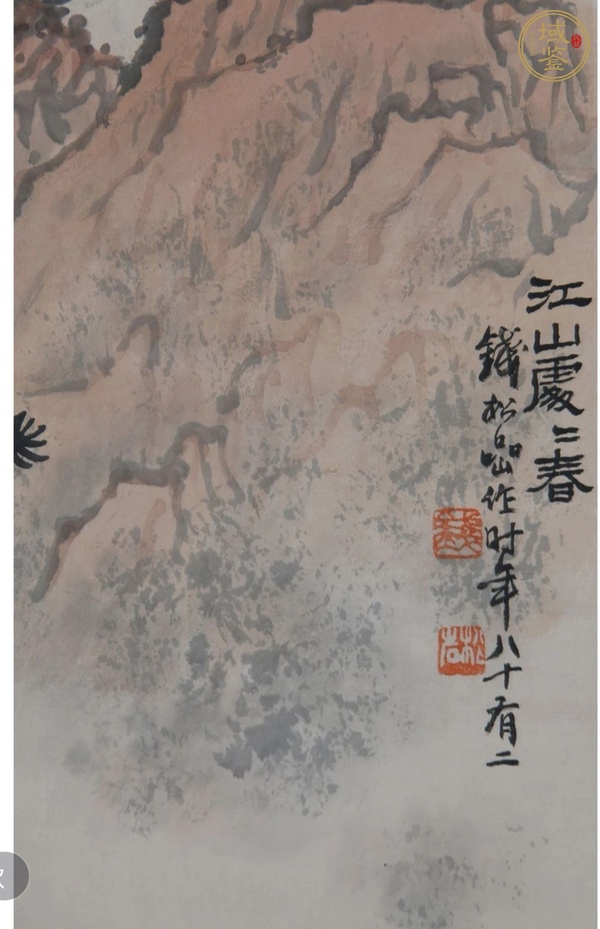 江山處〻春
錢松嵒作时年八十有二
域鉴